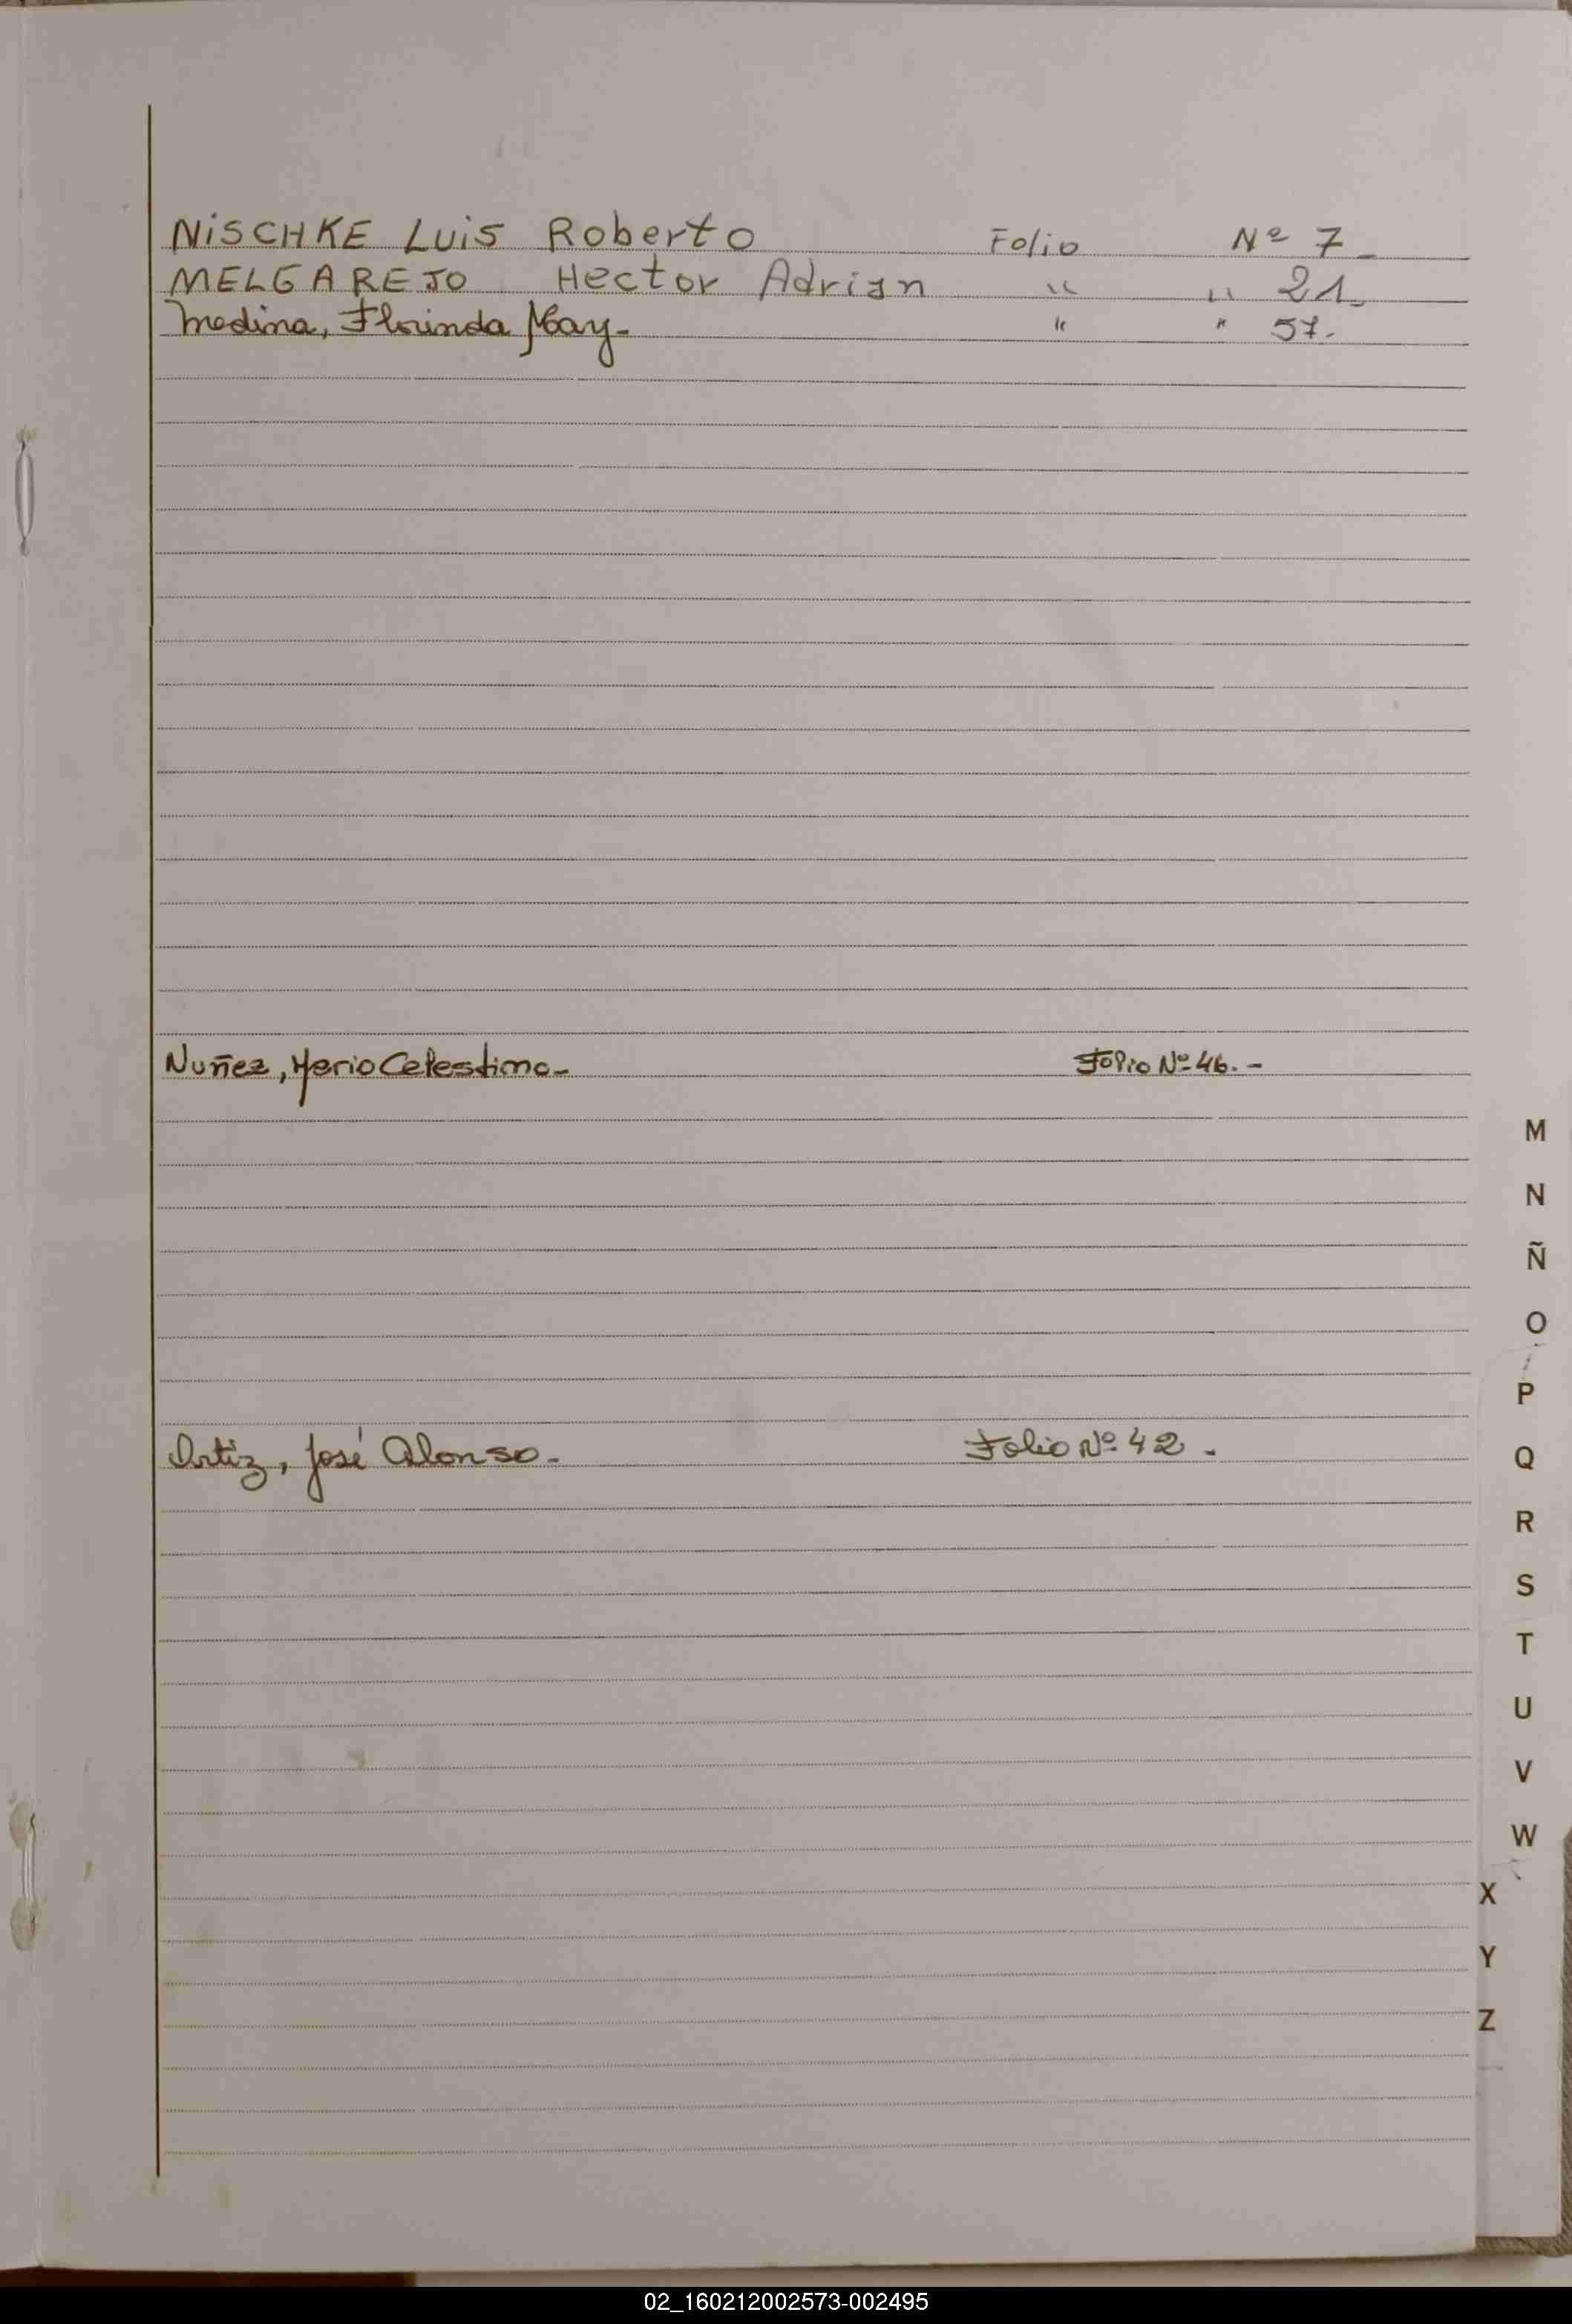 NiSCHKE LUiS Roberto Folio Nº 7_
MELGAREJO Hector Adrian " " 21_
Medina, Florinda May- " " 57.-
Nuñez, Mario Celestino- Folio Nº 46.-
Ortiz, José Alonso.- Folio Nº 42.-
M
N
Ñ
O
P
Q
R
S
T
U
V
W
X
Y
Z
02_160212002573-002495